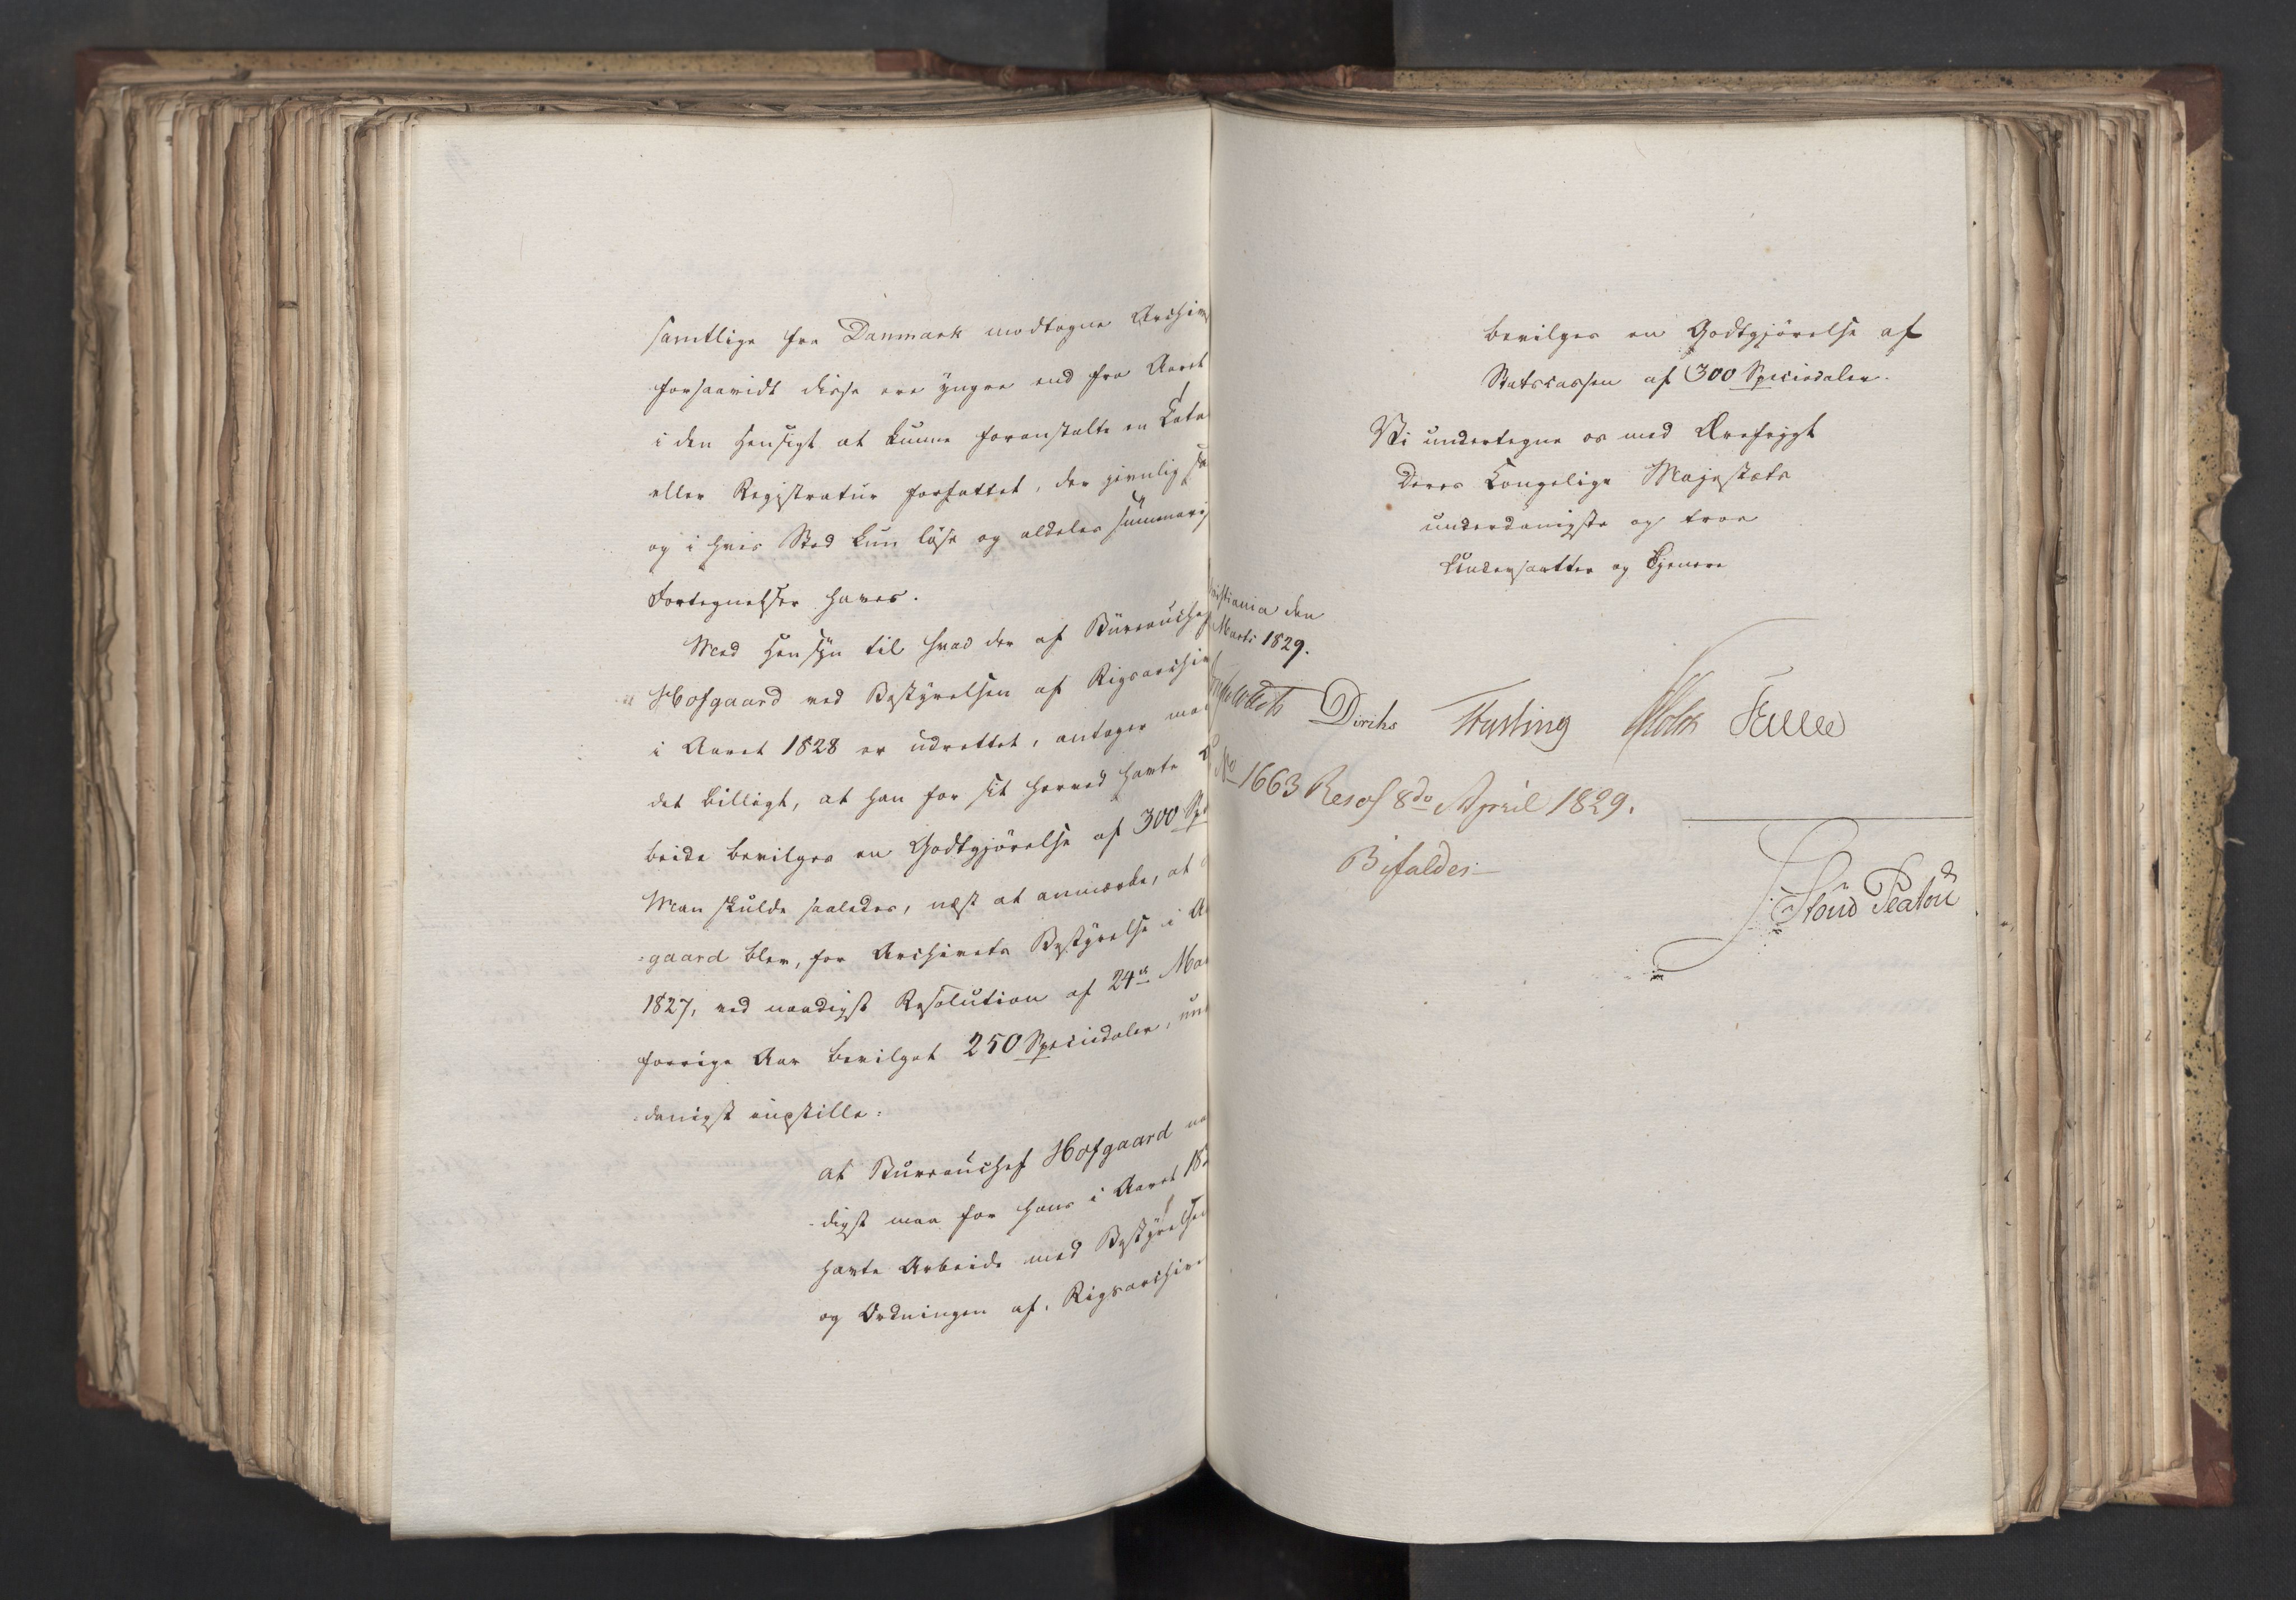 samtlige fra Danmark modtagne Archiv
forsaavidt disse ere yngre end fra Aaret
i den Hensigt at kunne foranstalte en Cata
eller Registratur forfattet, der jevnlig sa
og i hvis Sted kun løse og aldeles summaris
Fortegnelser haves.
Med Hensyn til hvad der af Büreauchef
Hofgaard ved Bestyrelsen af Rigsarchiv
i Aaret 1828 er udrettet, antager man
det billigt, at han for sit herved havte
beide bevilges en Godtgjørelse af 300 Spe
Man skulde saaledes, næst at anmærke, at
=gaard blev, for Archivets Bestyrelse i A
1827, ved naadigst Resolution af 24de Mar
forrige Aar bevilget 250 Speciedaler, un
=danigst indstille:
at Bureauchef Hofgaard na
=digst maa for hans i Aaret 182
havte Arbeide med Bestyrelsen
og Ordningen af Rigsarchive
bevilges en Godtgjörelse af
Statscassen af 300 Speciedaler.
Vi undertegne os med Ærefrygt
Deres Kongelige Majestæts
underdanigste og troe
Undersaatter og Tjenere
istiania den
Marts 1829.
Diriks Fasting Holst
No 1663 Resol 8de April 1829.
Bifaldes